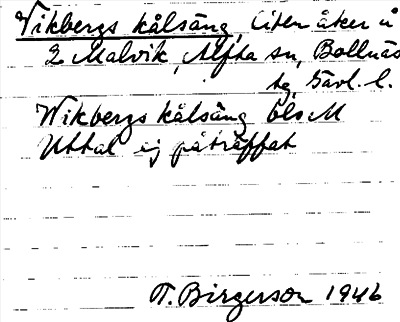 Vikbergs kålsäng, liten åker å
2 Malvik, Alfta sn, Bollnäs
tg, Gävl. l.
Wikbergs kålsäng ÖlsM
Uttal ej påträffat
T. Birgerson 1946